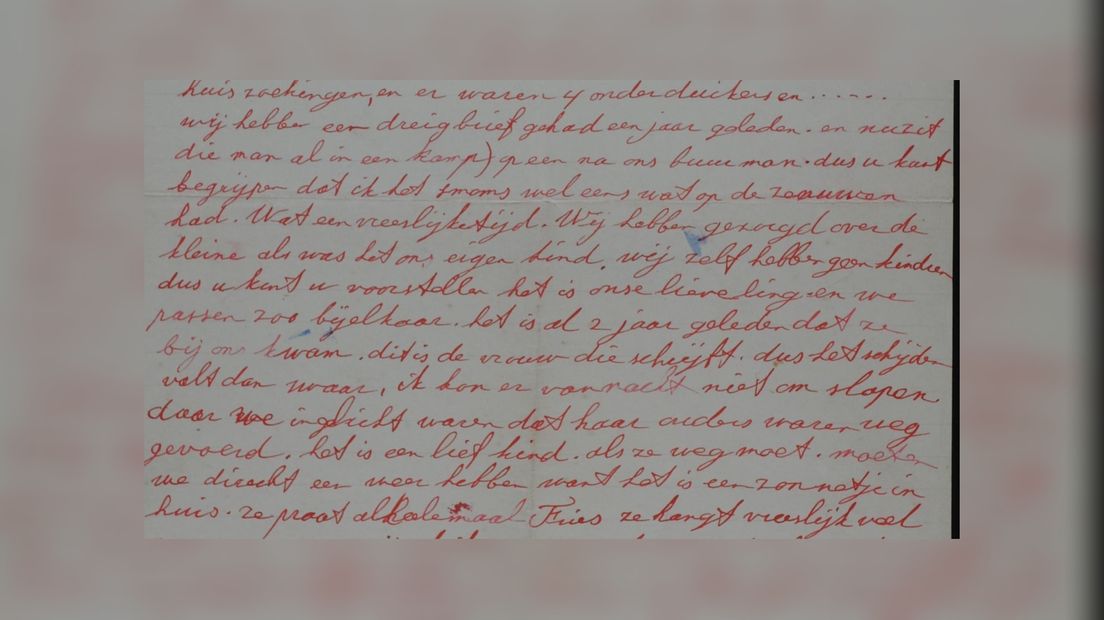 huiszoekingen, en er waren 4 onderduikers en ......
wij hebben een dreigbrief gehad een jaar geleden. en nu zit
die man al in een kamp) op een na ons buurman. dus u kunt
begrijpen dat ik het smoms wel eens wat op de zenuwen
had. Wat een vreeslijke tijd. Wij hebben gezorgd over de
kleine als was het ons eigen kind. wij zelf hebben geen kinderen
dus u kunt u voorstellen het is onse lieveling en we
passen zoo bijelkaar. het is al 2 jaar geleden dat ze
bij ons kwam. dit is de vrouw die schrijft. dus het schijden
valt dan zwaar, ik kon er vannacht niet om slapen
daar we inglicht waren dat haar ouders waren weg
gevoerd. het is een lief kind. als ze weg moet. moeten
we direckt een weer hebben want het is een zonnetje in
huis. ze praat alheelemaal Fries ze hangt vreeslijk veel